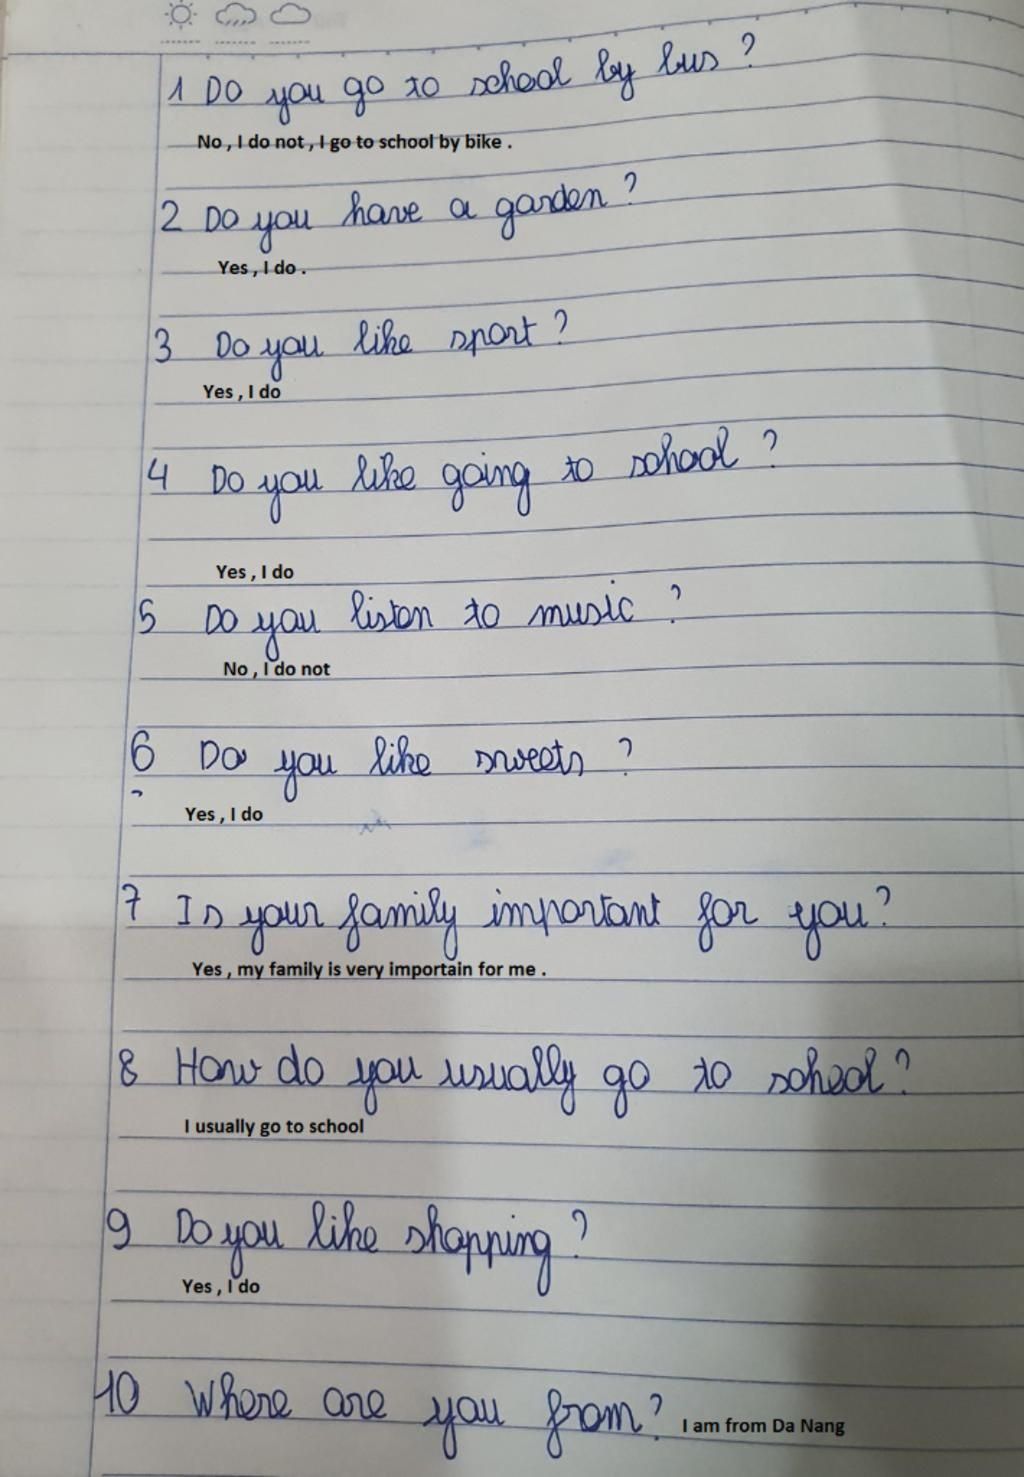 1 Do you go to school by bus ?
No , I do not , I go to school by bike .
2 Do you have a garden ?
Yes , I do .
3 Do you like sport ?
Yes , I do
4 Do you like going to school ?
Yes , I do
5 Do you listen to music ?
No , I do not
6 Do you like sweets ?
Yes , I do
7 Is your family important for you ?
Yes , my family is very importain for me .
8 How do you usually go to school ?
I usually go to school
9 Do you like shopping ?
Yes , I do
10 Where are you from ? I am from Da Nang